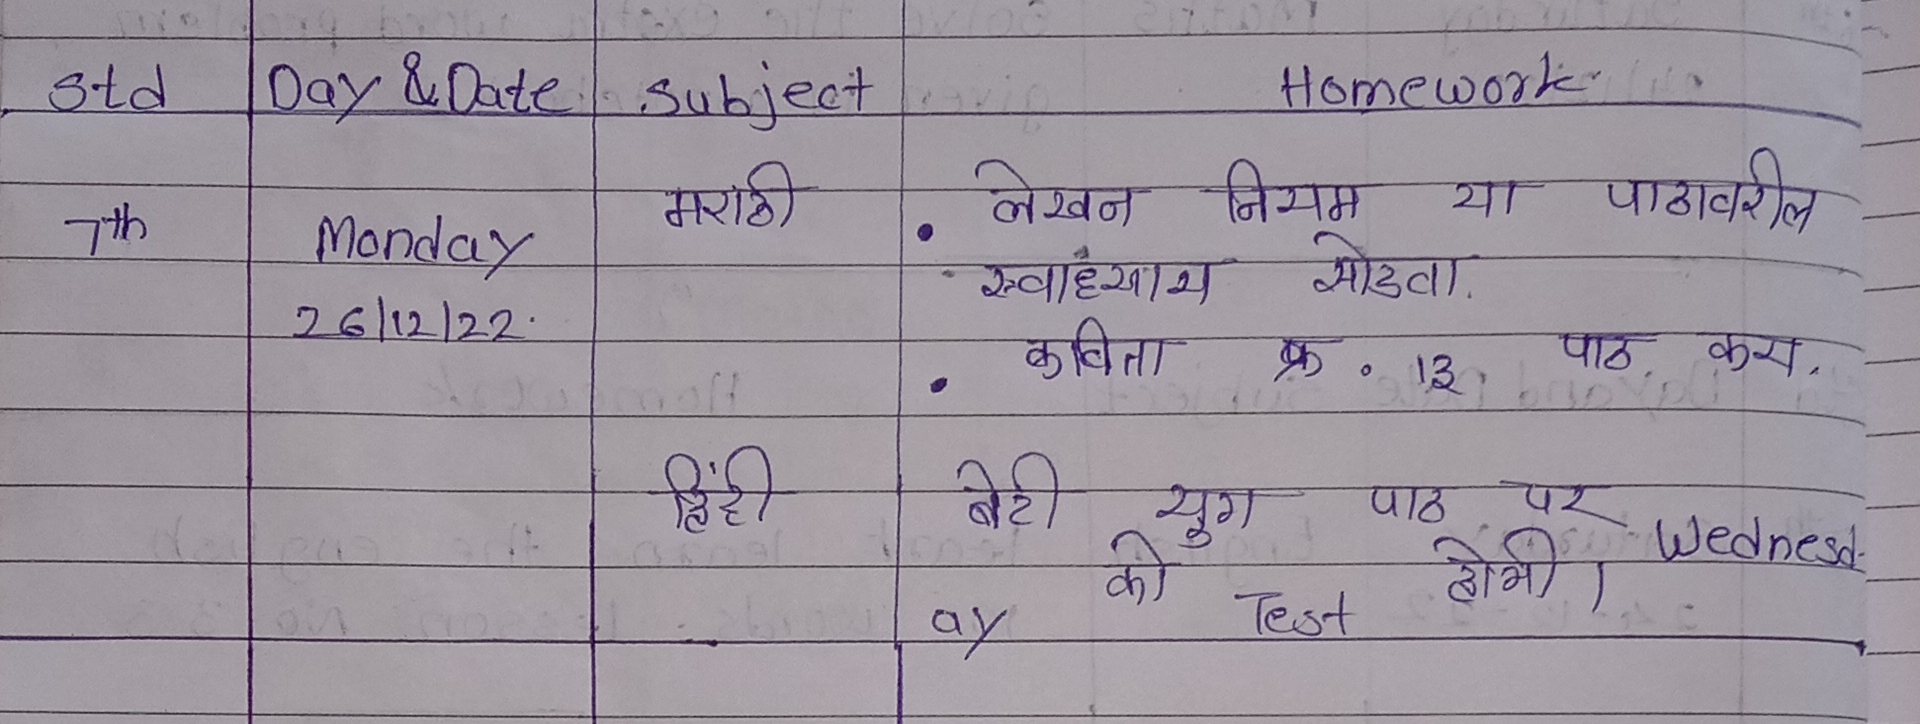 Std Day & Date Subject Homework
7th Monday मराठी • लेखन नियम या पाठावरील
26/12/22. स्वाध्याय सोडवा.
• कविता क्र. १३ पाठ करा.
हिंदी बेटी युग पाठ पर Wednesd-
ay को Test होगी।